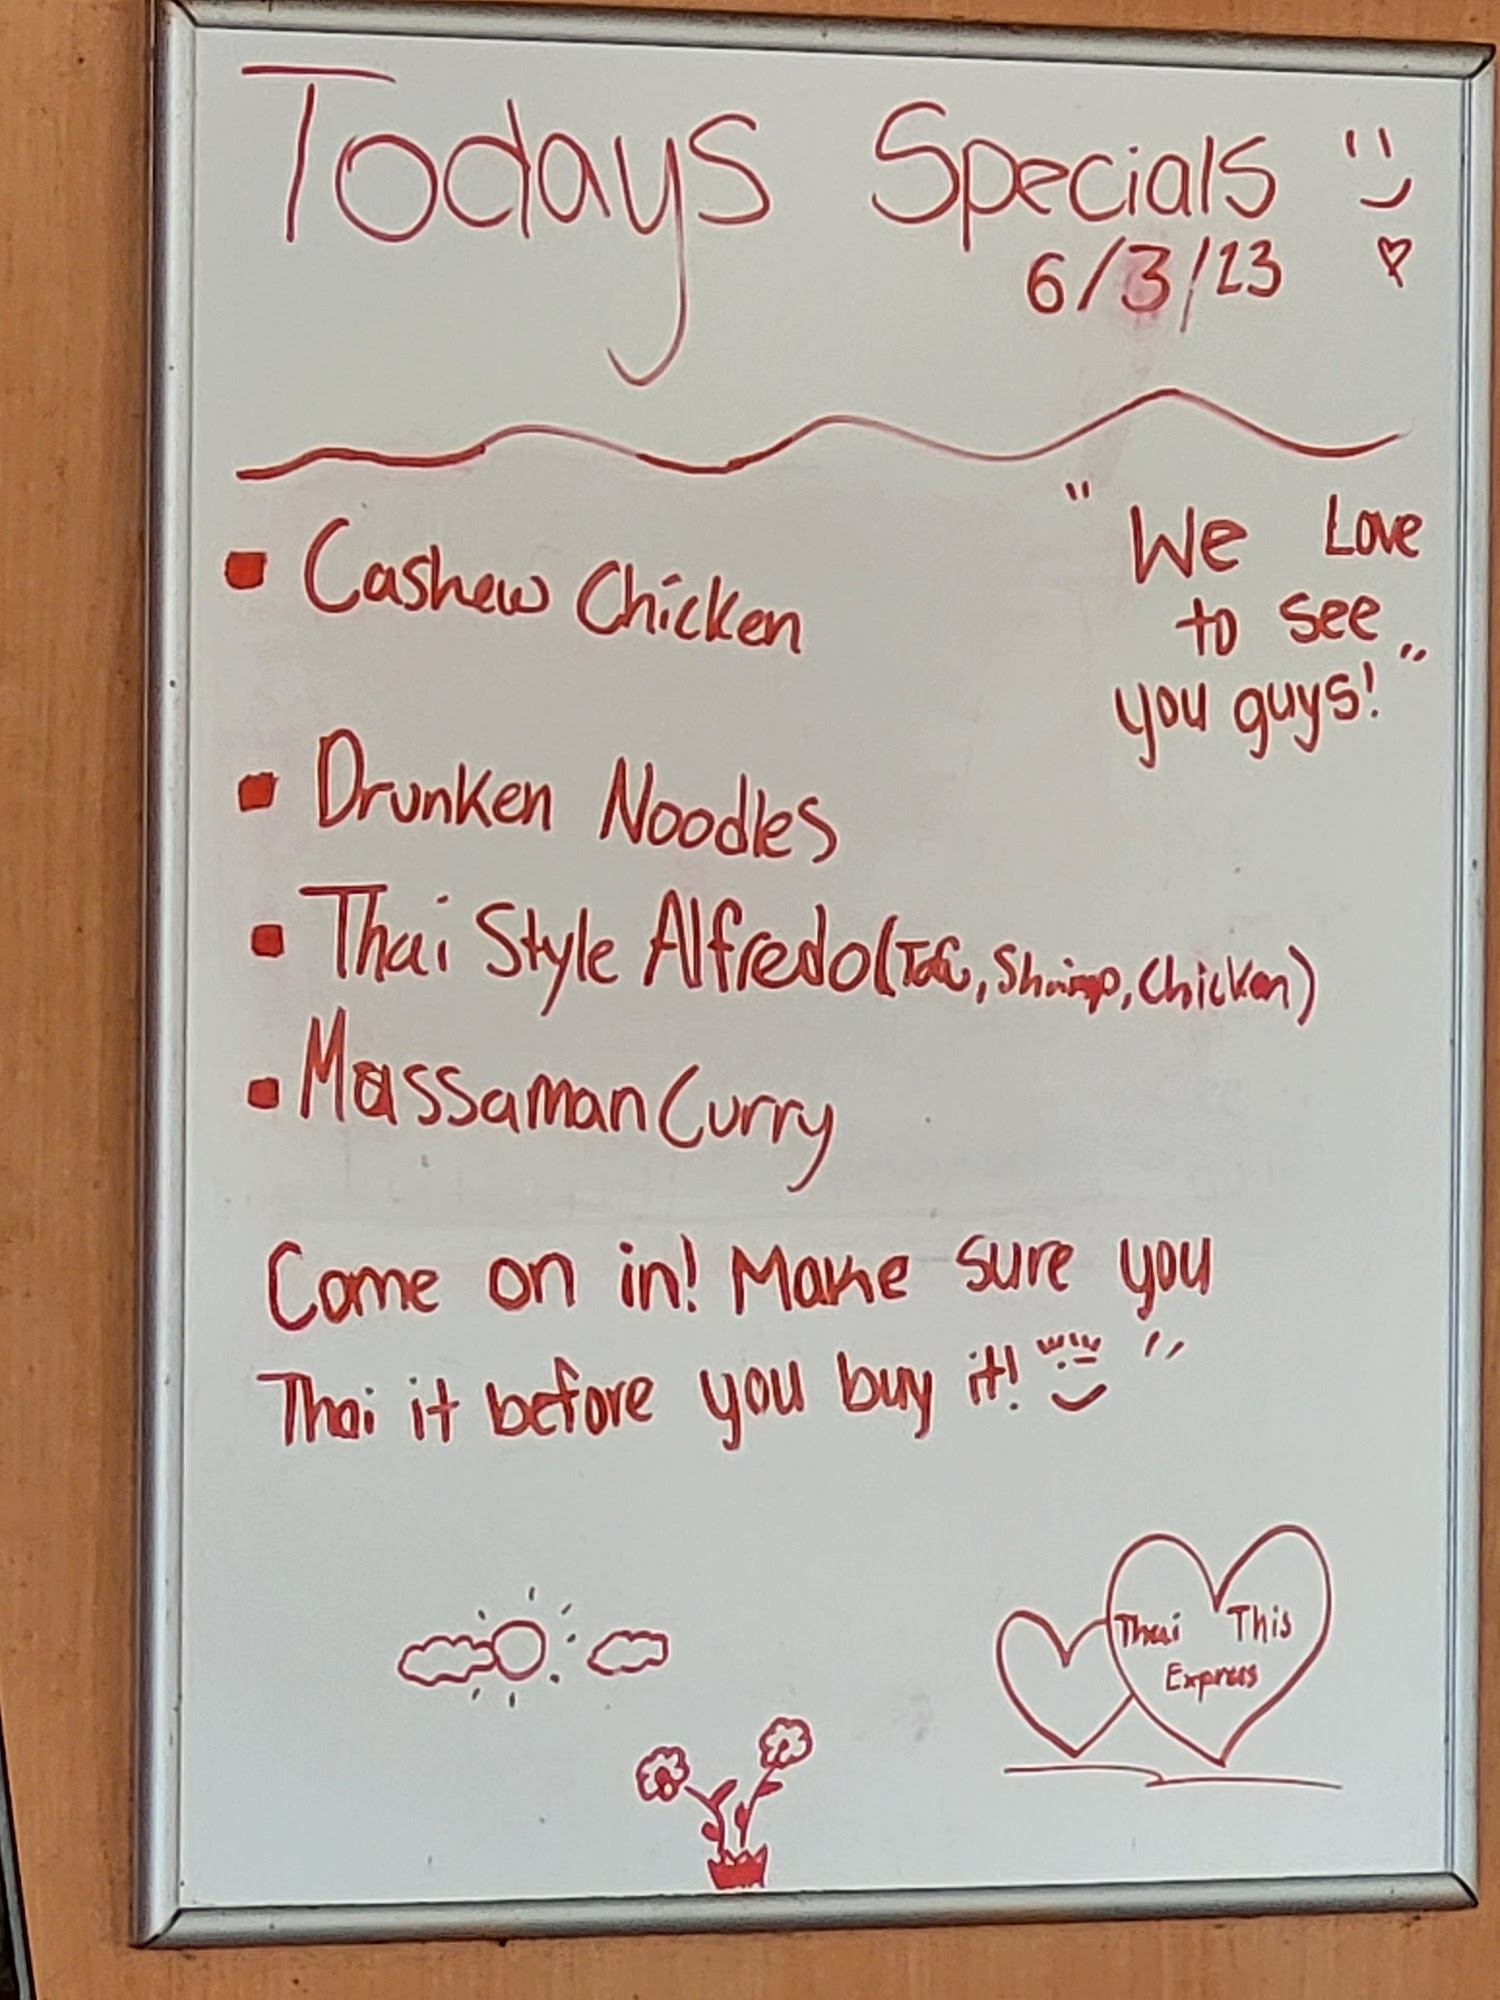 Todays Specials
6/3/23
" We Love
to see
you guys! "
Cashew Chicken
Drunken Noodles
Thai Style Alfredo (Tofu, Shrimp, Chicken)
Massaman Curry
Come on in! Make sure you
Thai it before you buy it! "
Thai This
Express